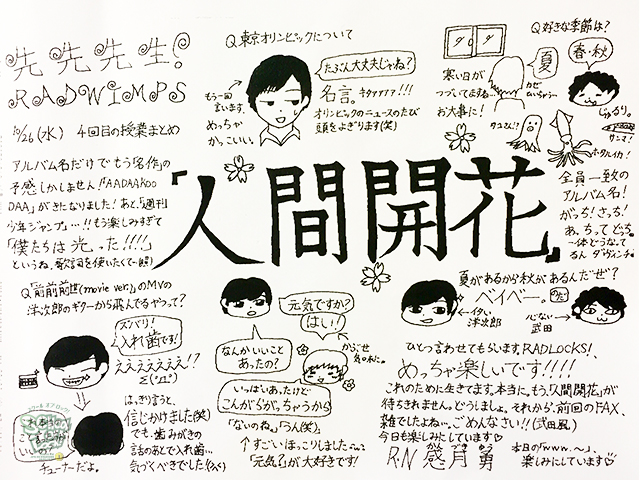 先先先生!
RADWIMPS
10/26(水) 4回目の授業まとめ
アルバム名だけでもう名作の
予感しかしません!「AADAAKOO
DAA」がきになりました!あと、「週刊
少年ジャンプ」…!!もう楽しみすぎて
「僕たちは光った!!!!」
というね、歌詞を使いたくて…
Q「前前前世(movie ver.)」のMVの
洋次郎のギターから飛んでるやつって?
ズバリ!
入れ歯です!
えええええええ!?
はっきり言うと、
信じかけました(笑)
でも、歯みがきの
話のあとで入れ歯…
気づくべきでした
チューナーだよ。
Q東京オリンピックについて
たぶん大丈夫じゃね?
もう一回
言います。
めっちゃ
かっこいい
名言。キタァァァァ!!!
オリンピックのニュースのたび
頭をよぎります(笑)
Q好きな季節は?
夏
春・秋
寒い日が
つづいてますね。
お大事に!
じゅるり。
サンマ!
ホタルイカ!
「人間開花」
全員一致の
アルバム名!
がっち!さっち!
あ、ちってどっち。
一体どうなって
るん ダ・ヴィンチ。
夏があるから秋があるんだぜ?
ベイベー。
イタい
洋次郎
心ない
武田
元気ですか?
はい!
なんかいいこと
あったの?
いっぱいあったけど
こんがらがっちゃうから
「ないのね。」「うん(笑)」
↑すごいほっこりしました
「元気?」が大好きです!
ひとつ言わせてもらいます、RADLOCKS!、
めっちゃ楽しいです!!!!
これのために生きてます。本当に。もう、「人間開花」が
待ちきれません。どうしましょ。それから、前回のFAX、
雑でしたよね…ごめんなさい!!(武田風)
今日も楽しみにしています♡
R・N 感月 勇
本日の「www.〜」、
楽しみにしています♡